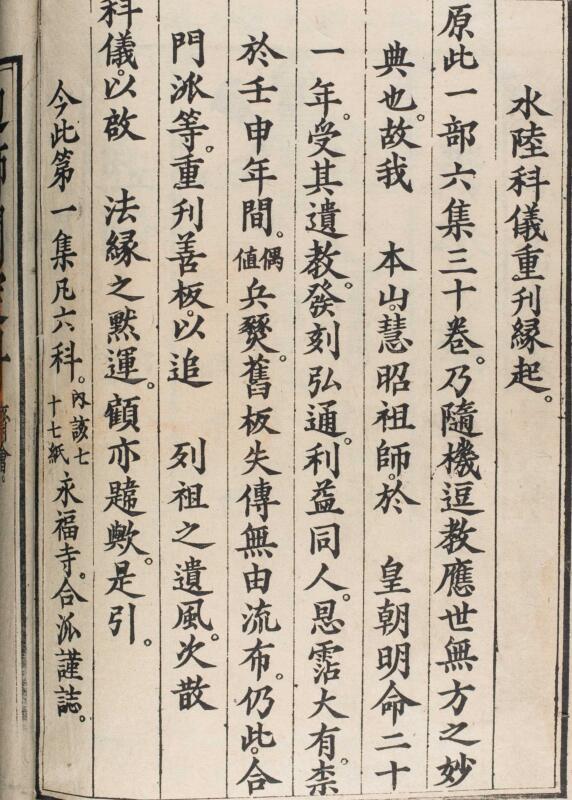 水陸科儀重刊緣起。
原此一部六集三十卷。乃隨機逗教應世無方之妙
典也。故我 本山慧昭祖師。於 皇朝明命二十
一年。受其遺教。發刻弘通。利益同人。恩霑大有。柰
於壬申年間。偶值兵燹。舊板失傳無由流布。仍此。合
門派等。重刊善板。以追 列祖之遺風。次散
科儀。以啟 法緣之默運。顧亦韙歟。是引。
今此第一集凡六科。內該七十七紙永福寺。合派謹誌。